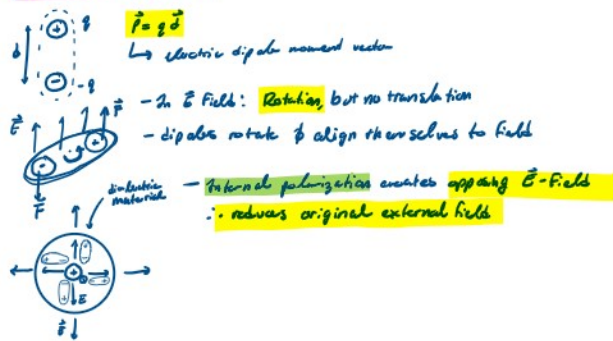 q
p⃗ = q d⃗
d
↳ electric dipole moment vector
-q
- In E⃗ Field: Rotation, but no translation
E⃗
F⃗
- dipoles rotate & align themselves to field
F⃗
dielectric material
- Internal polarization creates opposing E⃗-Field
∴ reduces original external field
E
E⃗